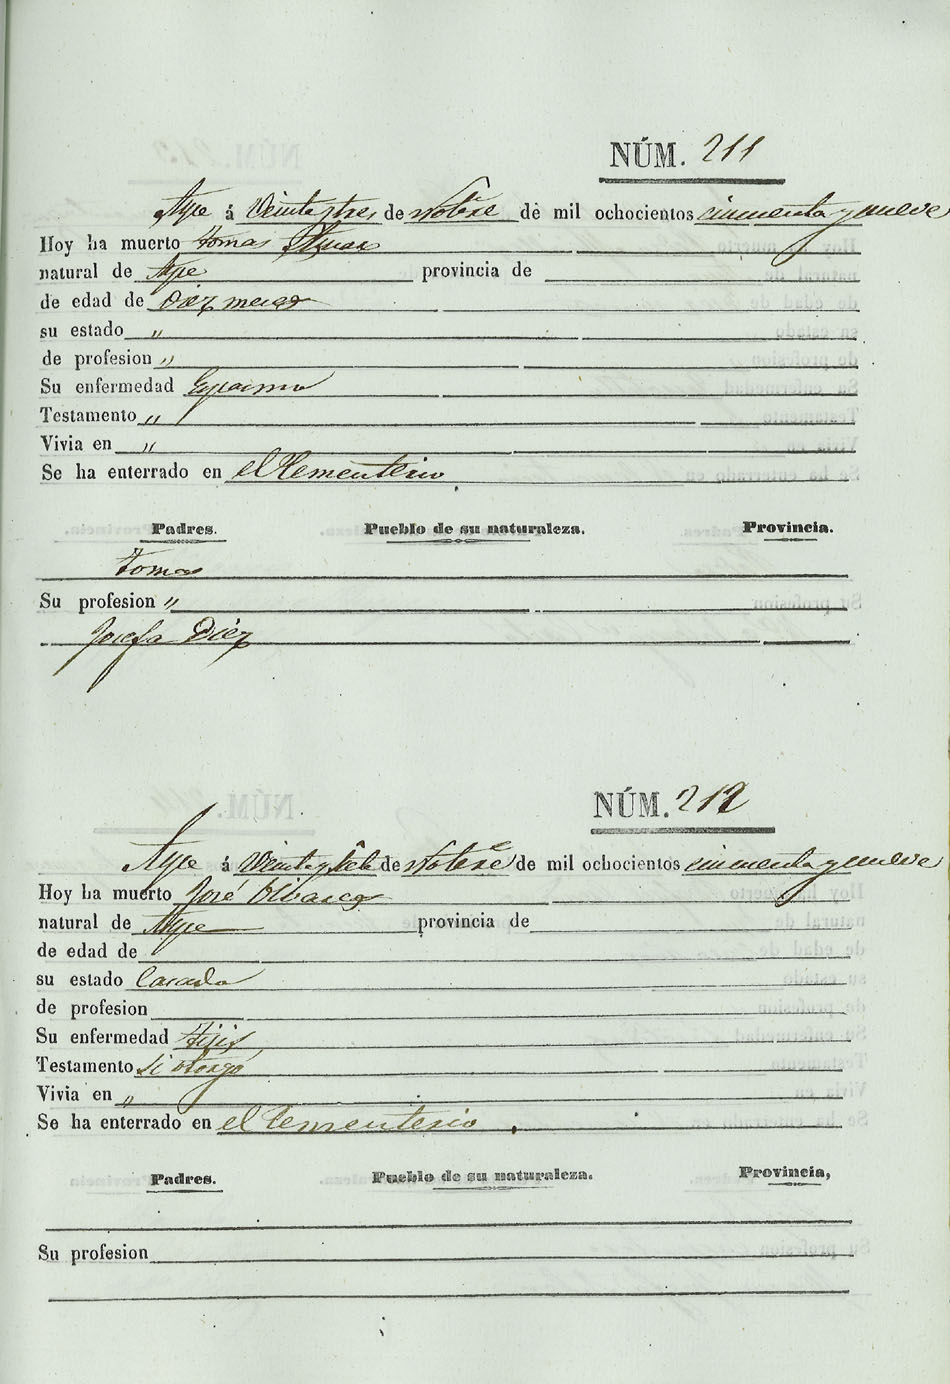 NÚM. 211
Aspe á Veinte y tres de Nobre de mil ochocientos cincuenta y nueve
Hoy ha muerto tomas
natural de Aspe provincia de
de edad de Diez meses
su estado "
de profesion "
Su enfermedad Espasmo
Testamento "
Vivia en "
Se ha enterrado en el Cementerio
Padres. Pueblo de su naturaleza. Provincia.
tomas
Su profesion "
Josefa Diez
NÚM. 212
Aspe á Veinte y siete de Nobre de mil ochocientos cincuenta y nueve
Hoy ha muerto José Olivares
natural de Aspe provincia de
de edad de
su estado Casado
de profesion
Su enfermedad tisis
Testamento si otorgó
Vivia en "
Se ha enterrado en el Cementerio
Padres. Pueblo de su naturaleza. Provincia,
Su profesion